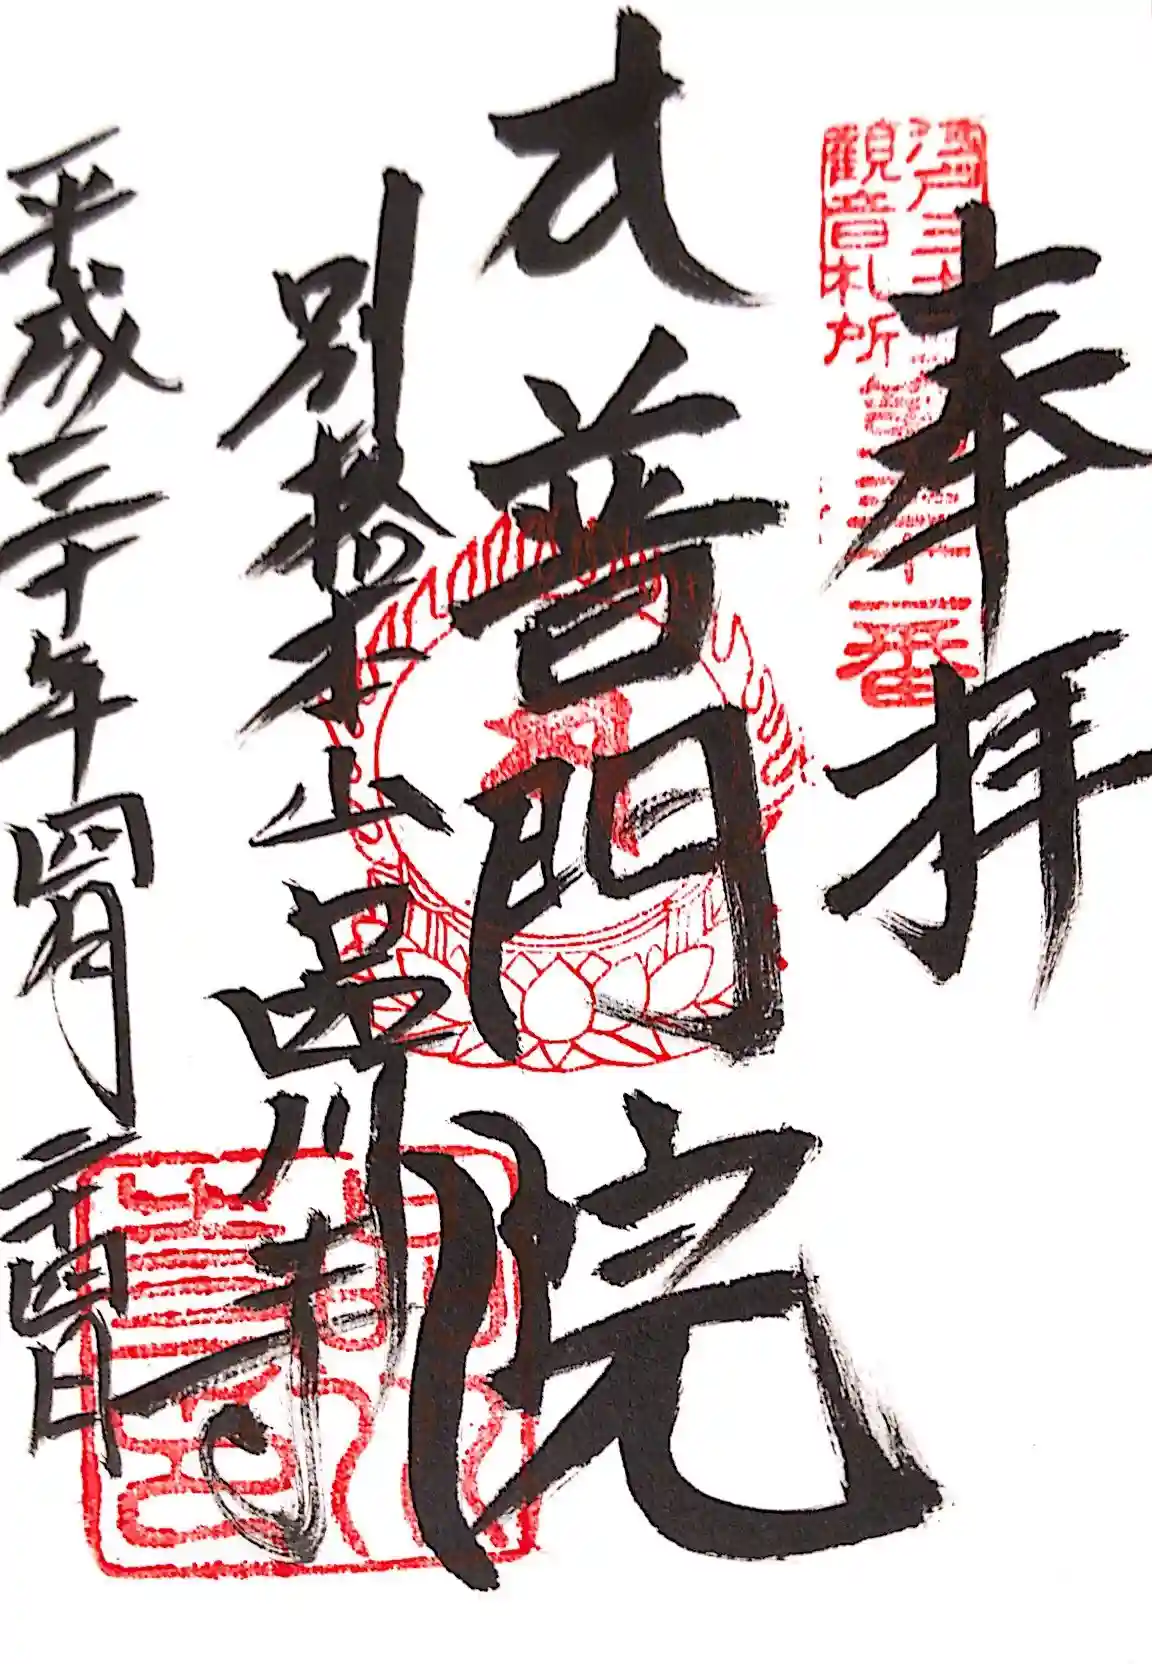 江戸三十三
観音札所
第三十一番
奉拝
普門院
別格本山 品川寺
平成三十年四月二十四日